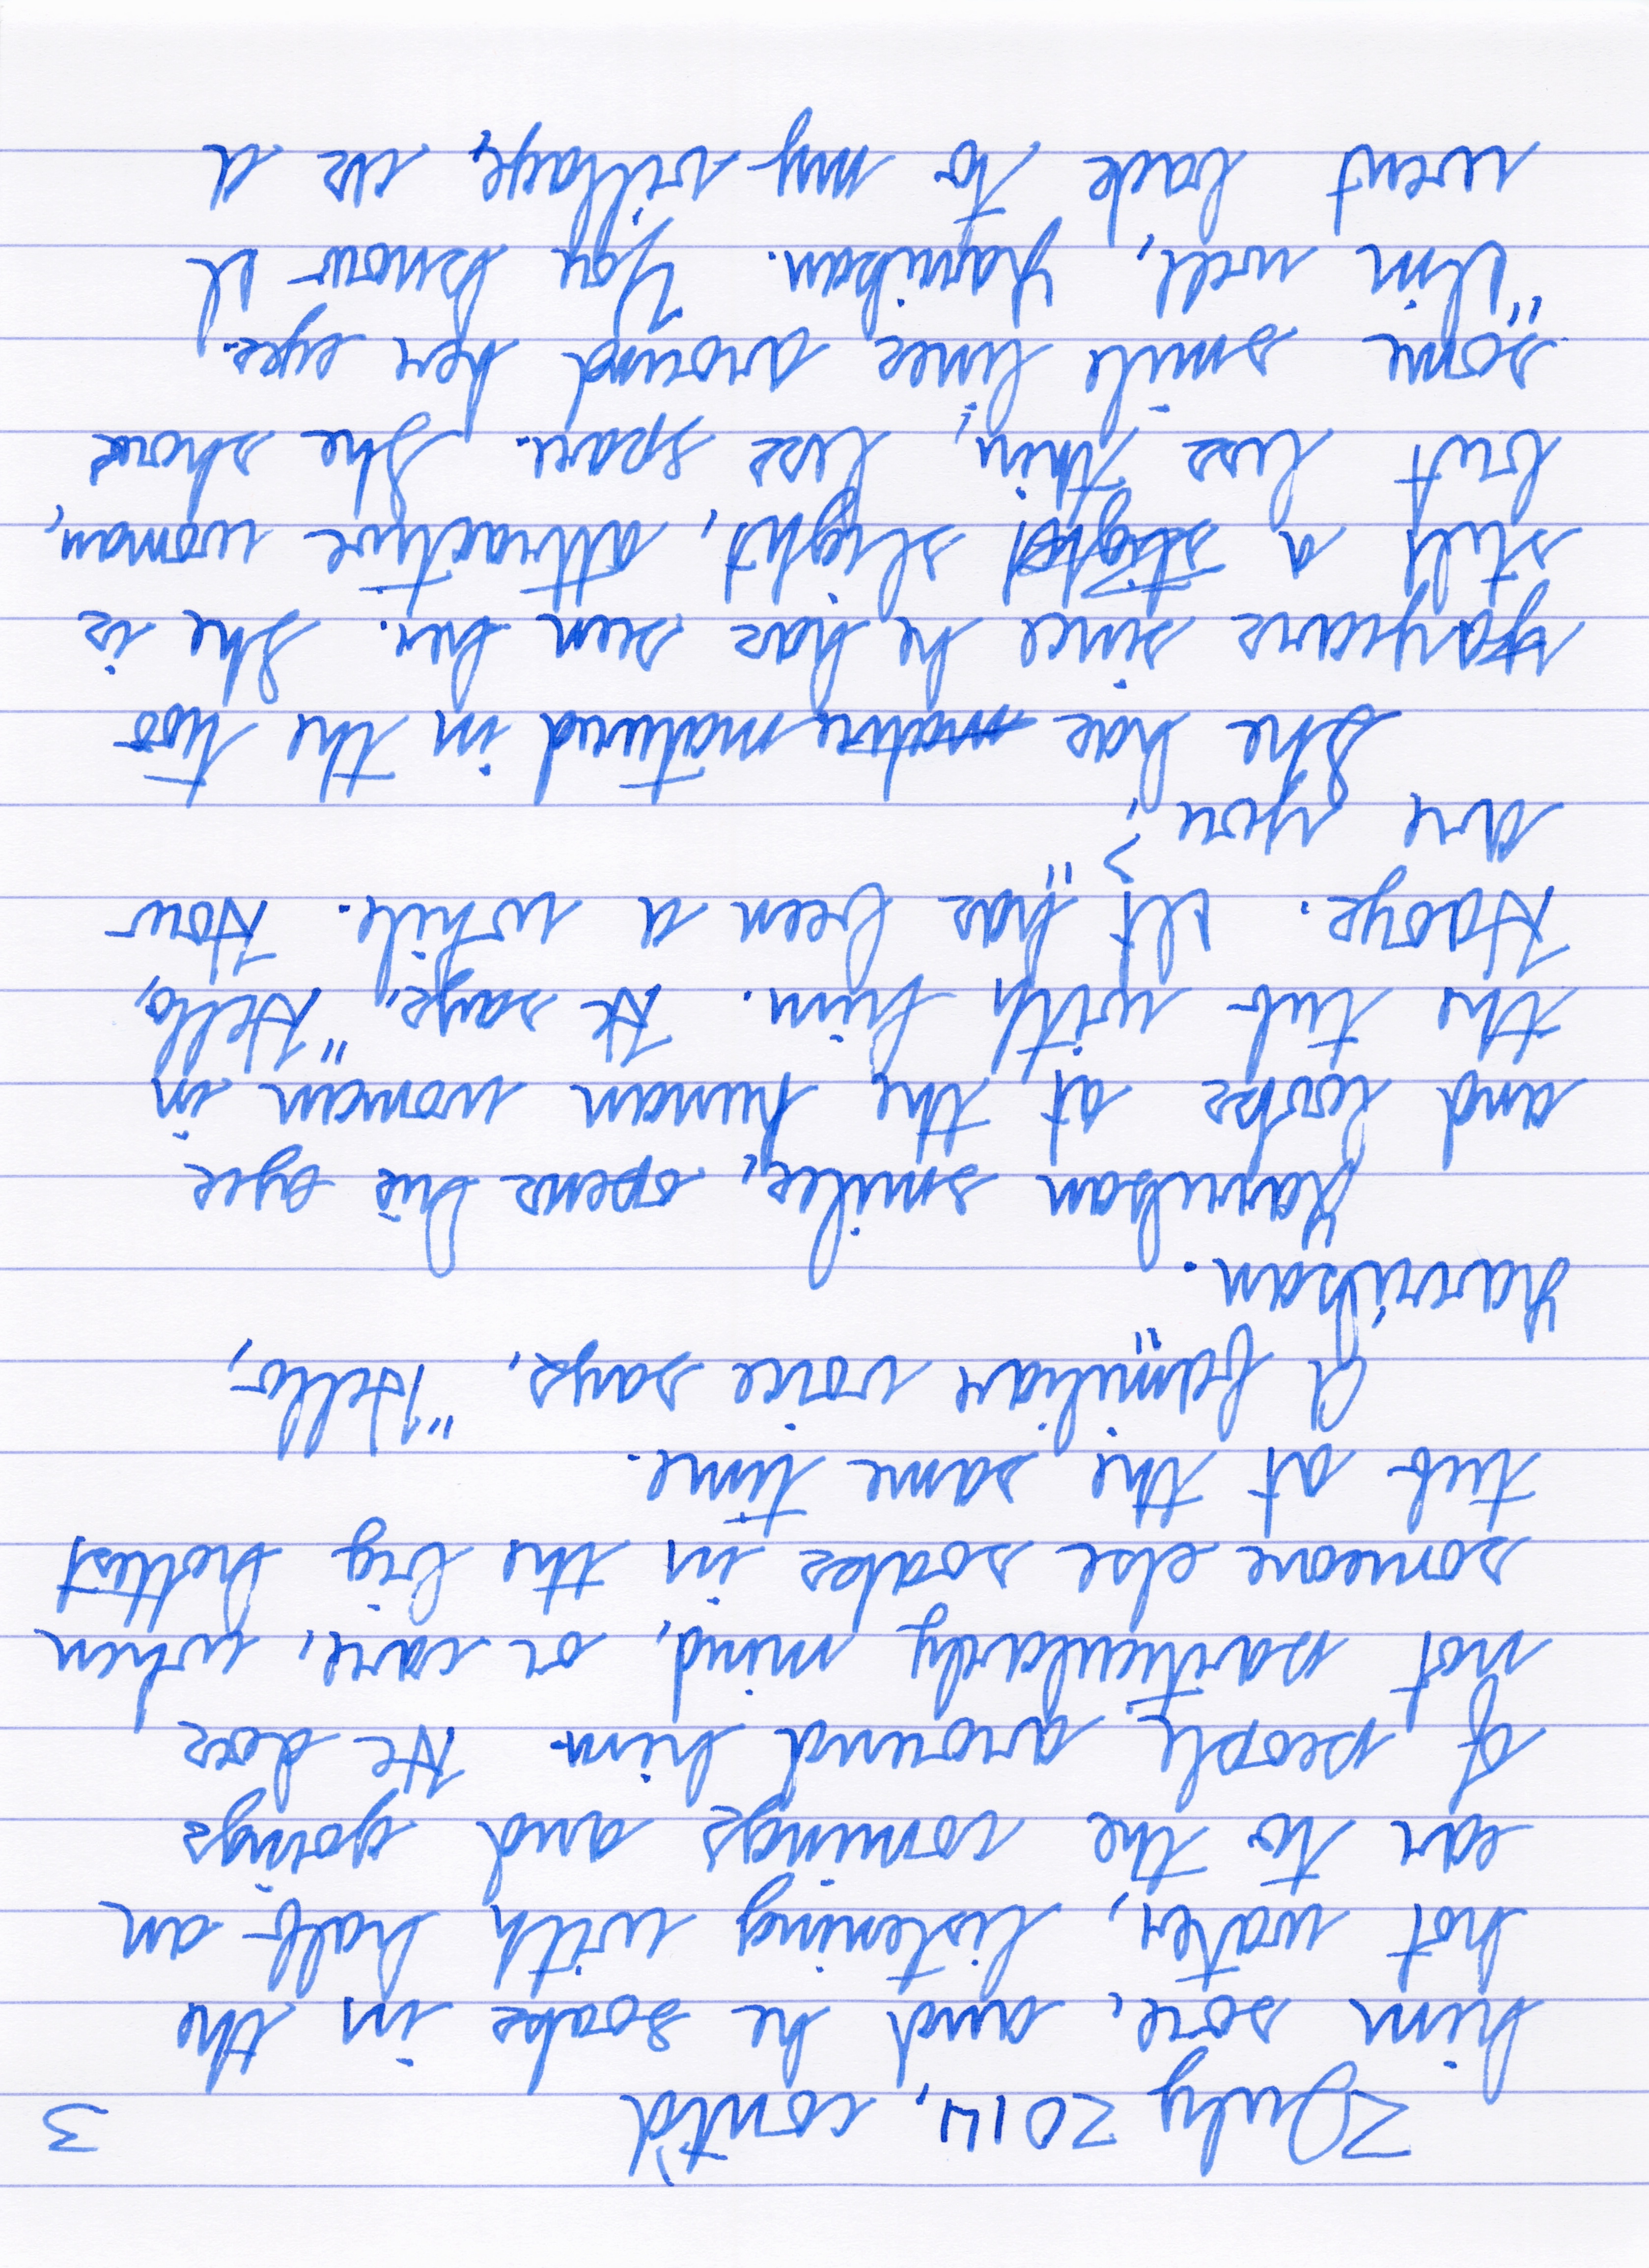 3 July 2014, cont'd 3
him sore, and he soaks in the
hot water, listening with half an
ear to the comings and goings
of people around him. He does
not particularly mind, or care, when
someone else soaks in the big hottest
tub at the same time.
A familiar voice says, "Hello,
Yarrikan."
Yarrikan smiles, opens his eyes
and looks at the human woman in
the tub with him. He says, "Hello,
It has been a while. How
are you?"
She has mature matured in the two
years since he has seen her. She is
still a slight, attractive woman,
but less thin, less spare. She shows
some smile lines around her eyes.
"I'm well, Yarrikan. You know I
went back to my village, as a